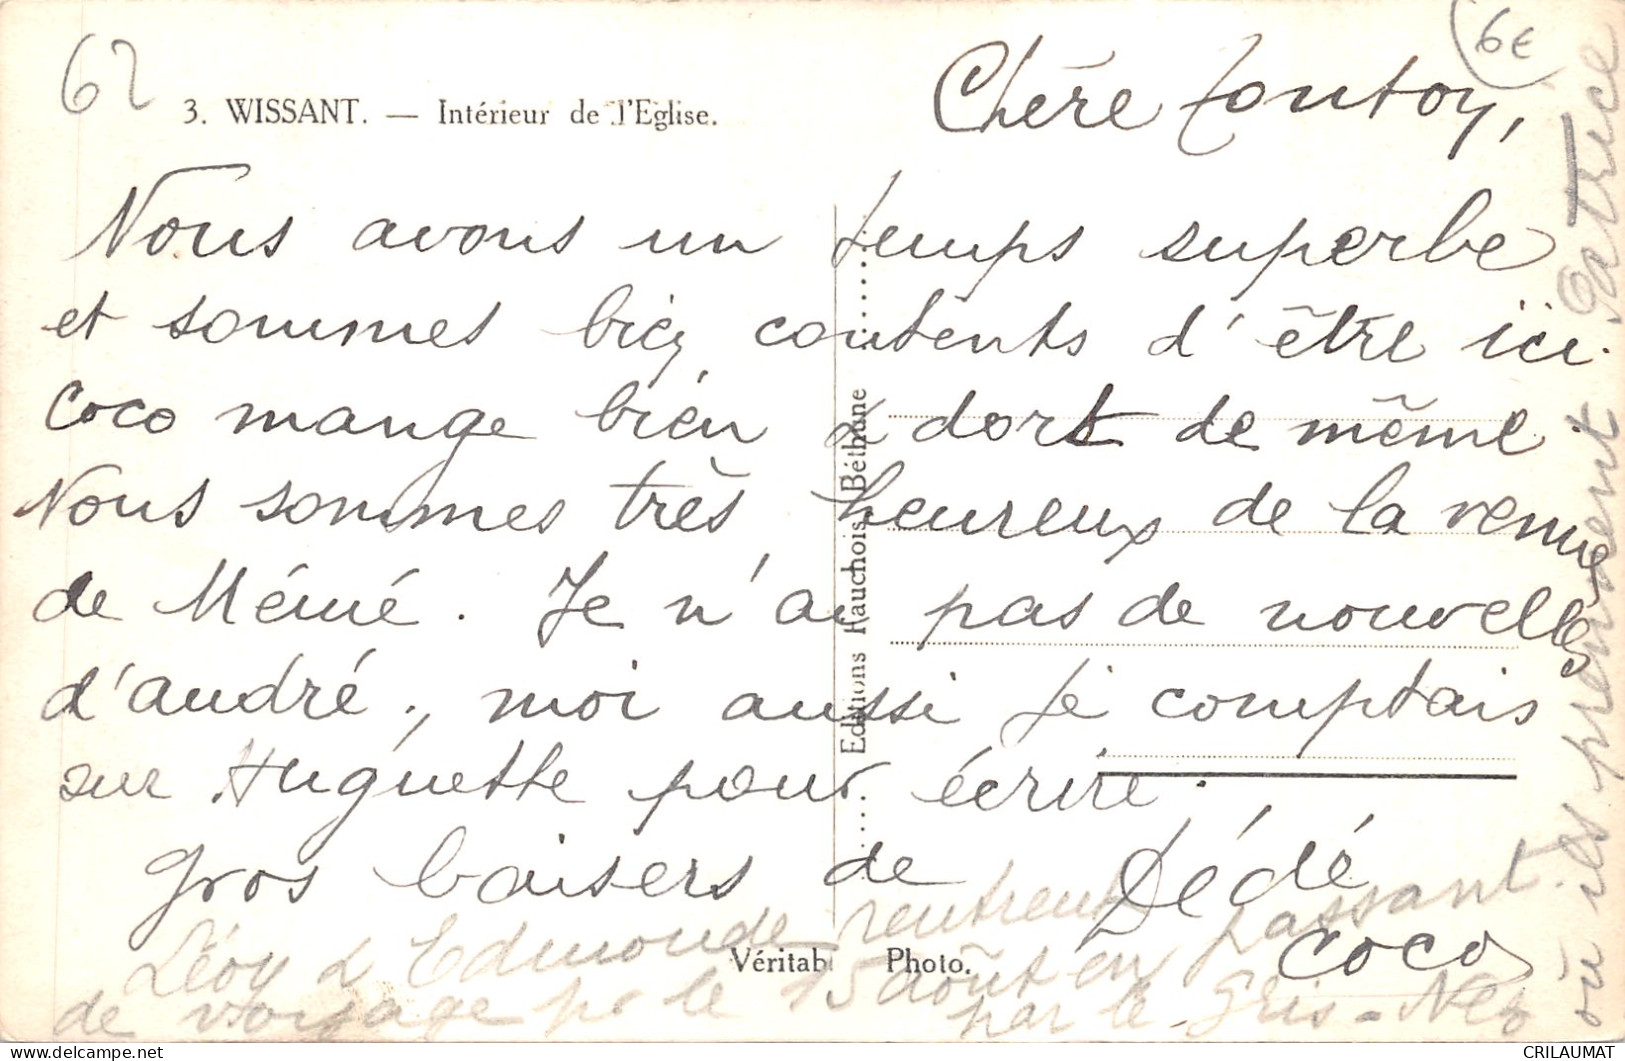 62
6€
3. WISSANT. — Intérieur de l'Eglise.
Chère Tontoy,
Nous avons un temps superbe
et sommes bien contents d'être ici.
Coco mange bien & dort de même.
Nous sommes très heureux de la venue
de Mémé. Je n'ai pas de nouvelles
d'andré., moi aussi je comptais
sur Huguette pour écrire.
Gros baisers de Dédé
Coco
Léon & Edmonde rentrent
de voyage pr le 15 août en passant
par le Gris-Nez
où ils prennent Patrice
Editions Hauchois Béthune
Véritab Photo.
CRILAUMAT